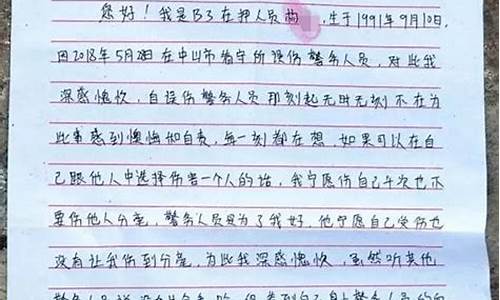 您好！我是B3在押人员尚 ，生于1991年9月10日.
因2018年5月28日在中山市看守所误伤警务人员，对此我
深感愧疚，自误伤警务人员那刻起无时无刻不在为
此事感到懊悔和自责，每一刻都在想，如果可以在自
己跟他人中选择伤害一个人的话，我宁愿伤自己千次也不
要伤他人分毫，警务人员是为了我好，他宁愿自己受伤也
没有让我伤到分毫，为此我深感愧疚，虽然听其他
警务人员说没有什么 ，但看到自己身上警务人员的